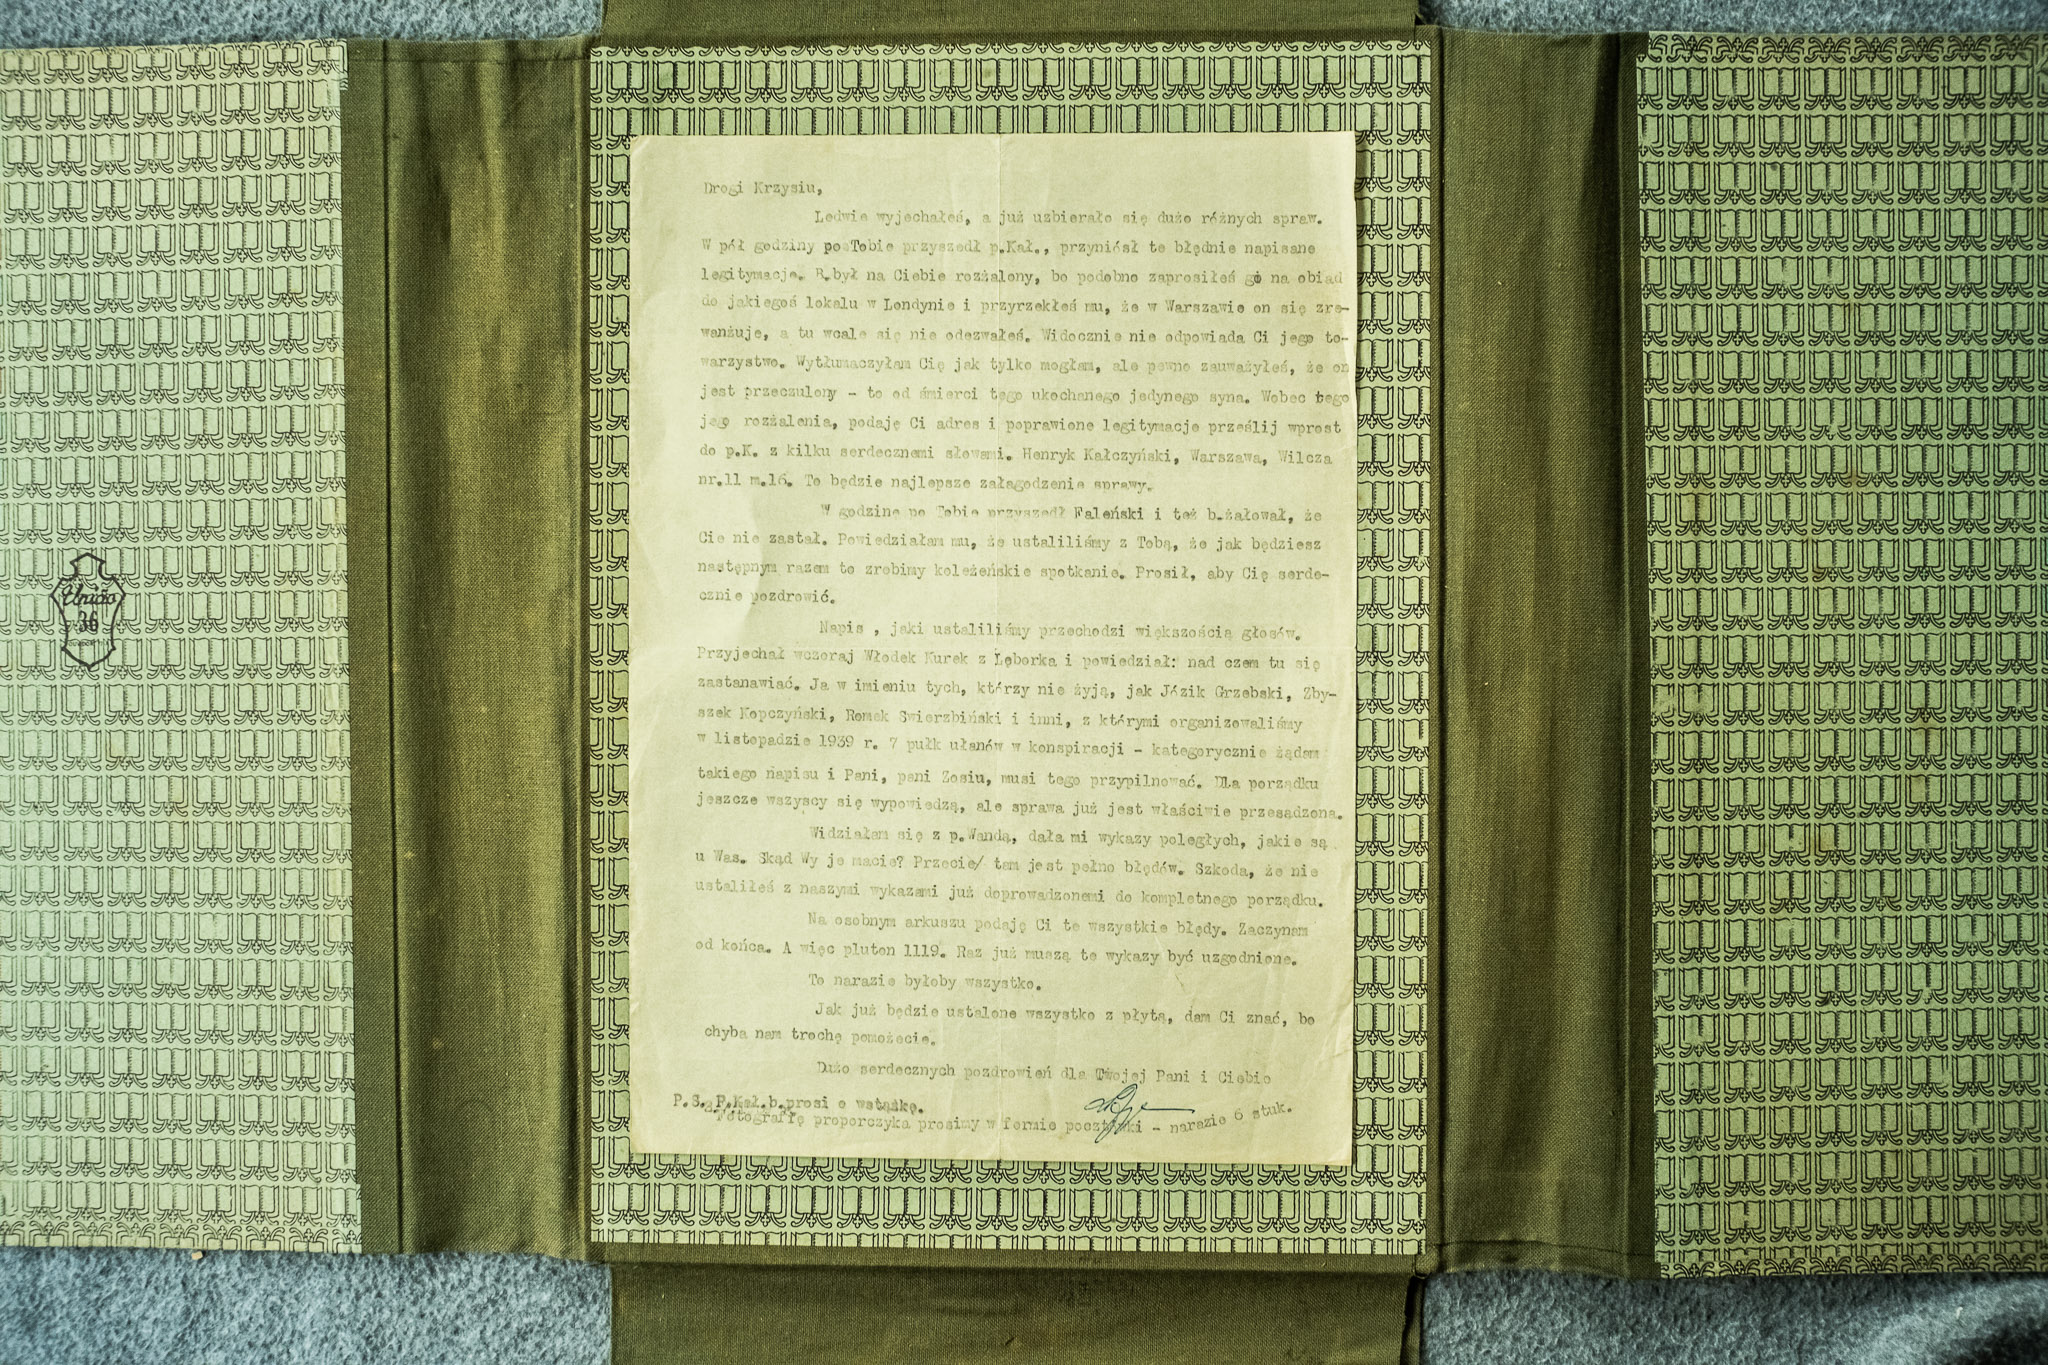 Drogi Krzysiu,
Ledwie wyjechałeś, a już uzbierało się dużo różnych spraw.
W pół godziny po Tobie przyszedł p.Kał., przyniósł te błędnie napisane
legitymacje. B.był na Ciebie rozżalony, bo podobno zaprosiłeś go na obiad
do jakiegoś lokalu w Londynie i przyrzekłeś mu, że w Warszawie on się zre-
wanżuje, a tu wcale się nie odezwałeś. Widocznie nie odpowiada Ci jego to-
warzystwo. Wytłumaczyłam Cię jak tylko mogłam, ale pewno zauważyłeś, że on
jest przeczulony - to od śmierci tego ukochanego jedynego syna. Wobec tego
jego rozżalenia, podaję Ci adres i poprawione legitymacje prześlij wprost
do p.K. z kilku serdecznemi słowami. Henryk Kałczyński, Warszawa, Wilcza
nr.11 m.16. To będzie najlepsze załagodzenie sprawy.
W godzinę po Tobie przyszedł Faleński i też b.żałował, że
Cie nie zastał. Powiedziałam mu, że ustaliliśmy z Tobą, że jak będziesz
następnym razem to zrobimy koleżeńskie spotkanie. Prosił, aby Cię serde-
cznie pozdrowić.
Napis , jaki ustaliliśmy przechodzi większością głosów.
Przyjechał wczoraj Włodek Kurek z Lęborka i powiedział: nad czem tu się
zastanawiać. Ja w imieniu tych, którzy nie żyją, jak Józik Grzebski, Zby-
szek Kopczyński, Romek Swierzbiński i inni, z którymi organizowaliśmy
w listopadzie 1939 r. 7 pułk ułanów w konspiracji - kategorycznie żądam
takiego napisu i Pani, pani Zosiu, musi tego przypilnować. Dla porządku
jeszcze wszyscy się wypowiedzą, ale sprawa już jest właściwie przesądzona.
Widziałam się z p.Wandą, dała mi wykazy poległych, jakie są
u Was. Skąd Wy je macie? Przecie/ tam jest pełno błędów. Szkoda, że nie
ustaliłeś z naszymi wykazami już doprowadzonemi do kompletnego porządku.
Na osobnym arkuszu podaję Ci te wszystkie błędy. Zaczynam
od końca. A więc pluton 1119. Raz już muszą te wykazy być uzgodnione.
To narazie byłoby wszystko.
Jak już będzie ustalone wszystko z płytą, dam Ci znać, bo
chyba nam trochę pomożecie.
Dużo serdecznych pozdrowień dla Twojej Pani i Ciebie
P.S. P.Kał.b.prosi o wstążkę.
Fotografię proporczyka prosimy w formie pocztówki - narazie 6 stuk.
Unida
36